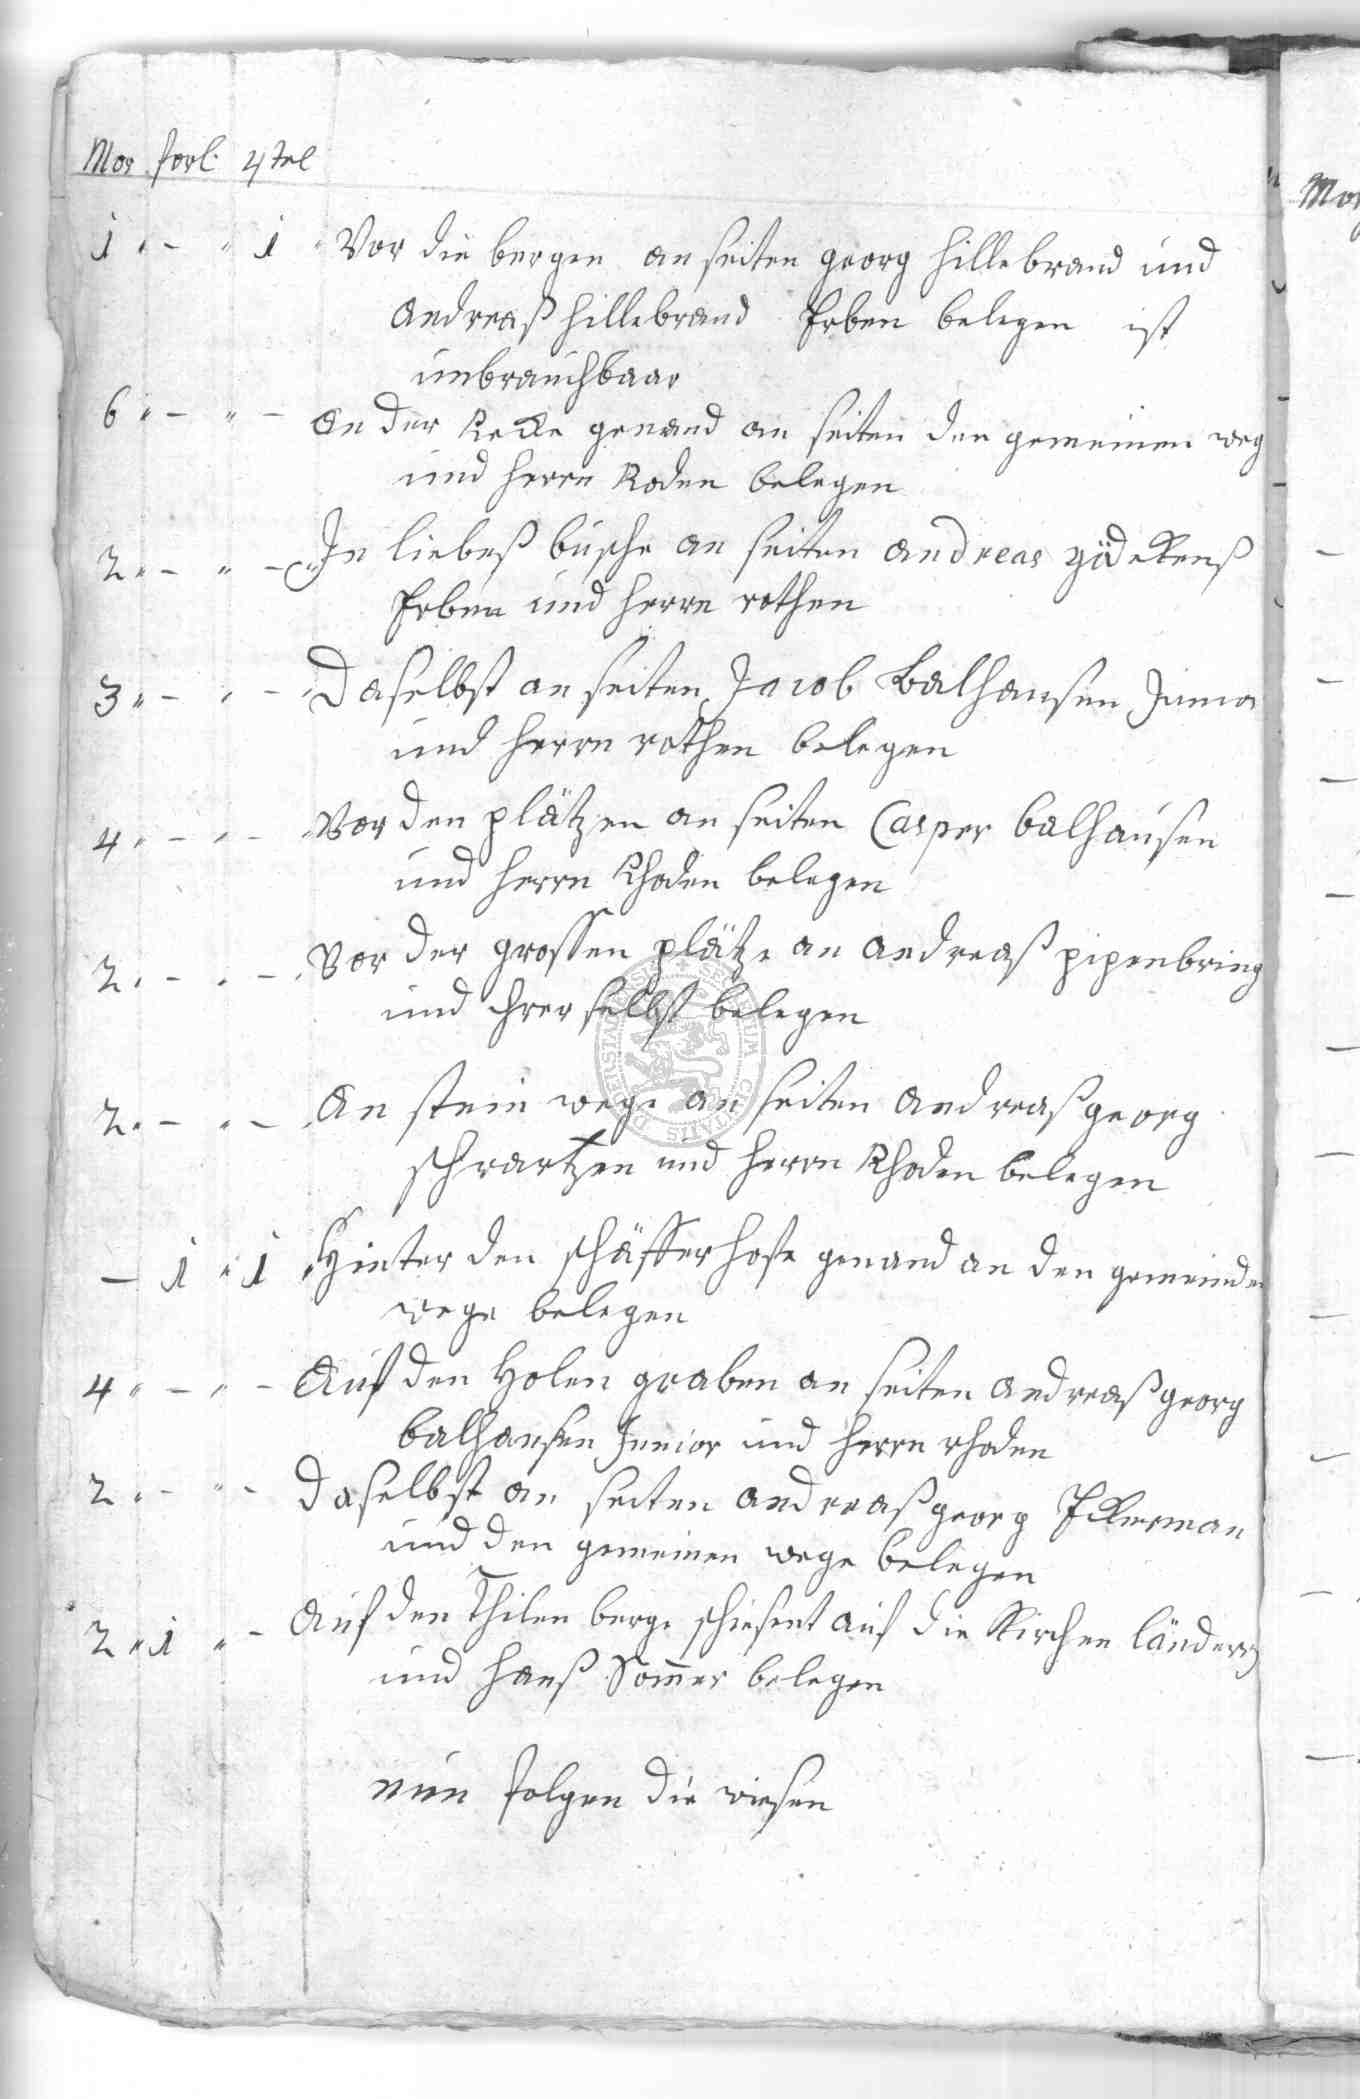 Mor forl. 4tel
1 " - " 1 " Vor die bergen an seiten georg hillebrand und
andreaß hillebrand Erben belegen ist
unbrauchbaar
6 " - " - an der Kecke genand an seiten den gemeinen weg
und herrn Roden belegen
2 " - " - " In liebeß busche an seiten andreas gödekenß
Erben und herrn rothen
3 " - " - " Daselbst an seiten Jacob Balhausen Junior
und herrn rothen belegen
4 " - " - " Vor den plätzen an seiten Casper balhausen
und herrn Rhoden belegen
2 " - " - " Vor der grossen plätze an andreaß pipenbring
und ihrer selbst belegen
2 " - " - " An stein wege an seiten andreaß georg
schwartzen und herrn Rhoden belegen
- 1 " 1 " Hinter den schäfferhofe genand an den gemeinden
wege belegen
4 " - " - Auf den Holen graben an seiten andreaß georg
balhausen Junior und herrn rhoden
2 " - " - Daselbst an seiten andreaß georg Eckerman
und den gemeinen wege belegen
2 " 1 " - Auf den Thilen berge schiesent auf die Kirchen länderey
und hanß Som̄er belegen
nun folgen die wiesen
Mor